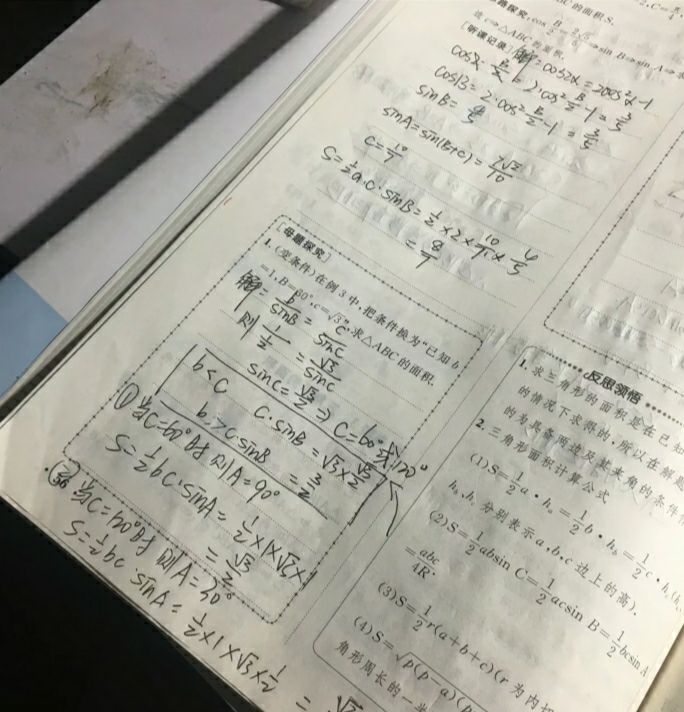 BC的面积S.
路探究] cos B/2 = 2√5/5 → sin B → sin A → 求
边c → △ABC的面积.
[听课记录] 解: cos2x = 2cos²x-1
cos2·B/2 = 2·cos²B/2-1 = 3/5
cosB = 2·cos²B/2-1 = 3/5
sinB = 4/5
sinA = sin(B+C) = 7√2/10
C = 10/7
S = 1/2 a·c·sinB = 1/2 × 2 × 10/7 × 4/5
= 8/7
[母题探究]
1. (变条件)在例3中,把条件换为“已知b
=1,B=30°,c=√3”求△ABC的面积.
解: b/sinB = c/sinC
则 1/(1/2) = √3/sinC
sinC = √3/2 ⇒ C=60°或120°
b<c c·sinB = √3×√3/2
b>c·sinB = 3/2
① 当C=60°时 则A=90°
S=1/2 bc·sinA = 1/2×1×√3×1
= √3/2
② 当C=120°时 则A=30°
S=1/2 bc·sinA = 1/2×1×√3×1/2
=
反思领悟
1. 求三角形的面积是在已知
的情况下求得的,所以在解题
的为具备两边及其夹角的条件
2. 三角形面积计算公式
(1)S=1/2 a·hₐ=1/2 b·h_b=1/2 c·h_c(h
h_b,h_c 分别表示a,b,c边上的高).
(2)S=1/2 absin C=1/2 acsin B=1/2 bcsin A
=abc/4R.
(3)S=1/2 r(a+b+c)(r为内切
(4)S=√p(p-a)(p
角形周长的一半